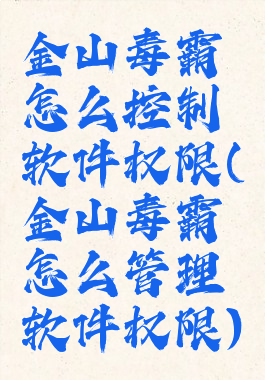 金山毒霸
怎么控制
软件权限(
金山毒霸
怎么管理
软件权限)